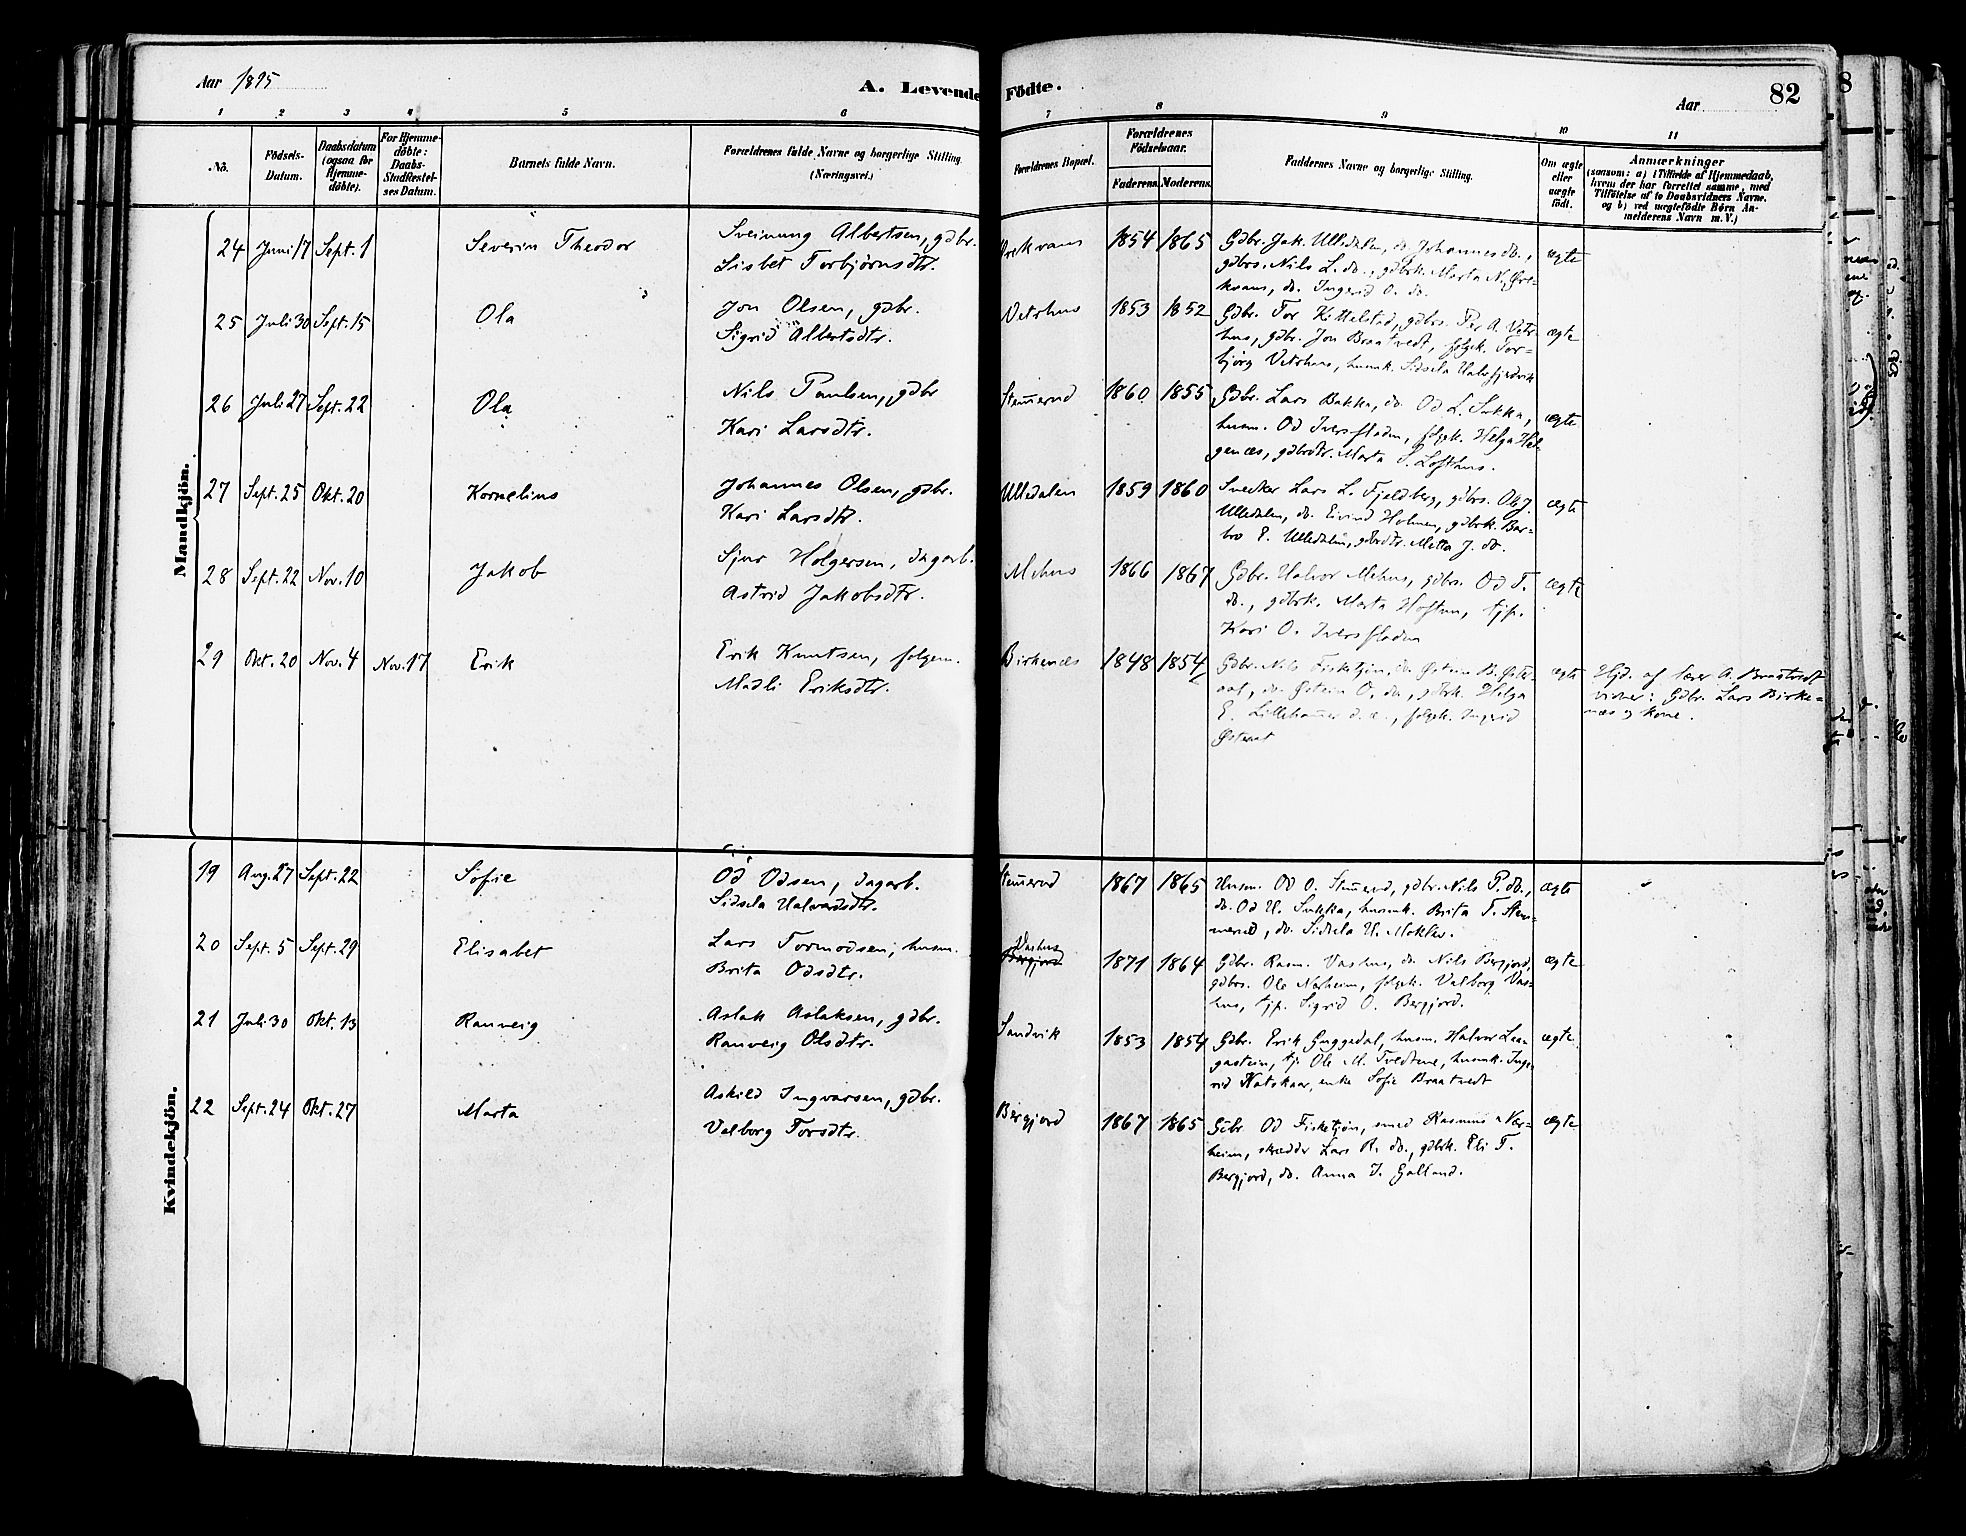 Aar 1895
A. Levende Födte.
Aar
82
1 2 3 4 5 6 7 8 9 10 11
No.
Födsels-Datum.
Daabsdatum (ogsaa for Hjemme-döbte).
For Hjemme-döbte: Daabs-Stadfæstel-ses Datum.
Barnets fulde Navn.
Forældrenes fulde Navne og borgerlige Stilling.
(Næringsvei.)
Forældrenes Bopæl.
Forældrenes Födselsaar.
Faderens. Moderens.
Faddernes Navne og borgerlige Stilling.
Om ægte eller uægte födt.
Anmærkninger
(saasom: a) i Tilfælde af Hjemmedaab,
hvem der har forrettet samme, med
Tilföielse af to Daabsvidners Navne,
og b) ved uægtefödte Börn An-
melderens Navn m. V.)
Mandkjön.
24 Juni 17 Sept. 1 Severin Theodor
Sveinung Albertsen, gdbr.
Lisbet Torbjørnsdtr.
1854 1865
Gdbr. Jak. Ulledalen, do. Johannes do.,
gdbrs. Nils L. do., gdbrk. Marta N. Øre-
kvam, do. Ingerid O. do.
ægte
25 Juli 30 Sept. 15 Ola
Jon Olsen, gdbr.
Sigrid Albertsdtr.
Vetrhus 1853 1852
Gdbr. Tor Kittelstad, gdbrs. Per A. Vetr-
hus, gdbr. Jon Braatvedt, folgek. Tor-
bjørg Vetrhus, husmk. Sidsela
ægte
26 Juli 27 Sept. 22 Ola
Nils Paulsen, gdbr
Kari Larsdtr.
Stemerud 1860 1855
Gdbr. Lars Bakka, do. Od L. Sukka,
husm. Od Iversfladen, folgek. Helga Hel-
genæs, gdbrdtr. Marta S. Lofthus.
ægte
27 Sept. 25 Okt. 20 Kornelius
Johannes Olsen, gdbr.
Kari Larsdtr.
Ulledalen 1859 1860
Snedker Lars L. Fjeldberg, gdbrs. Ole J.
Ulledalen, do. Eivind Holmen, gdbrk. Bar-
bro E. Ulledalen, gdbrdtr. Metta J. do.
ægte
28 Sept. 22 Nov. 10 Jakob
Sjur Holgersen, dagarb.
Astrid Jakobsdtr.
Mehus 1866 1867
Gdbr. Halvor Mehus, gdbrs. Od T.
do., gdbrk. Marta Hoftun, tjp.
Kari O. Iversfladen
ægte
29 Okt. 20 Nov. 4 Nov. 17 Erik
Erik Knutsen, folgem.
Madli Eriksdtr.
Birkenæs 1848 1854
Gdbr. Nils Fisketjøn, do. Østein B. Øster-
aat, do. Østein O. do., gdbrk. Helga
E. Lillehamer d. æ., folgek. Ingrid
Østeraat
ægte
Hjd. af lærer A. Braatvedt
vidner: Gdbr. Lars Birke-
næs og kone.
Kvindekjön.
19 Aug. 27 Sept. 22 Sofie
Od Odsen, dagarb.
Sidsela Halvardsdtr.
Stemerud 1867 1865
Husm. Od O. Stemerud, gdbr. Nils P. do.,
do. Od H. Sukka, husmk. Brita T. Stem-
merud, do. Sidsela H.
ægte
20 Sept. 5 Sept. 29 Elisabet
Lars Tormodsen, husm.
Brita Odsdtr.
Vashus
Bergjord 1871 1864
Gdbr. Rasm. Vashus, do. Nils Bergjord,
gdbrs. Ole Nærheim, folgek. Valborg Vas-
hus, tjp. Sigrid O. Bergjord.
ægte
21 Juli 30 Okt. 13 Ranveig
Aslak Aslaksen, gdbr.
Ranveig Olsdtr.
Sandvik 1853 1854
Gdbr. Erik Guggedal, husm. Halvor Lan-
gastein, tj. Ole M. Tvedtene, husmk. Inge-
rid Katskaar, enke Sofie Braatvedt
ægte
22 Sept. 24 Okt. 27 Marta
Askild Ingvarsen, gdbr.
Valborg Torsdtr.
Bergjord 1867 1865
Gdbr. Od Fisketjøn, smed Rasmus Nær-
heim, skrædder Lars R. do., gdbrk. Eli T.
Bergjord, do. Anna I. Galland.
ægte